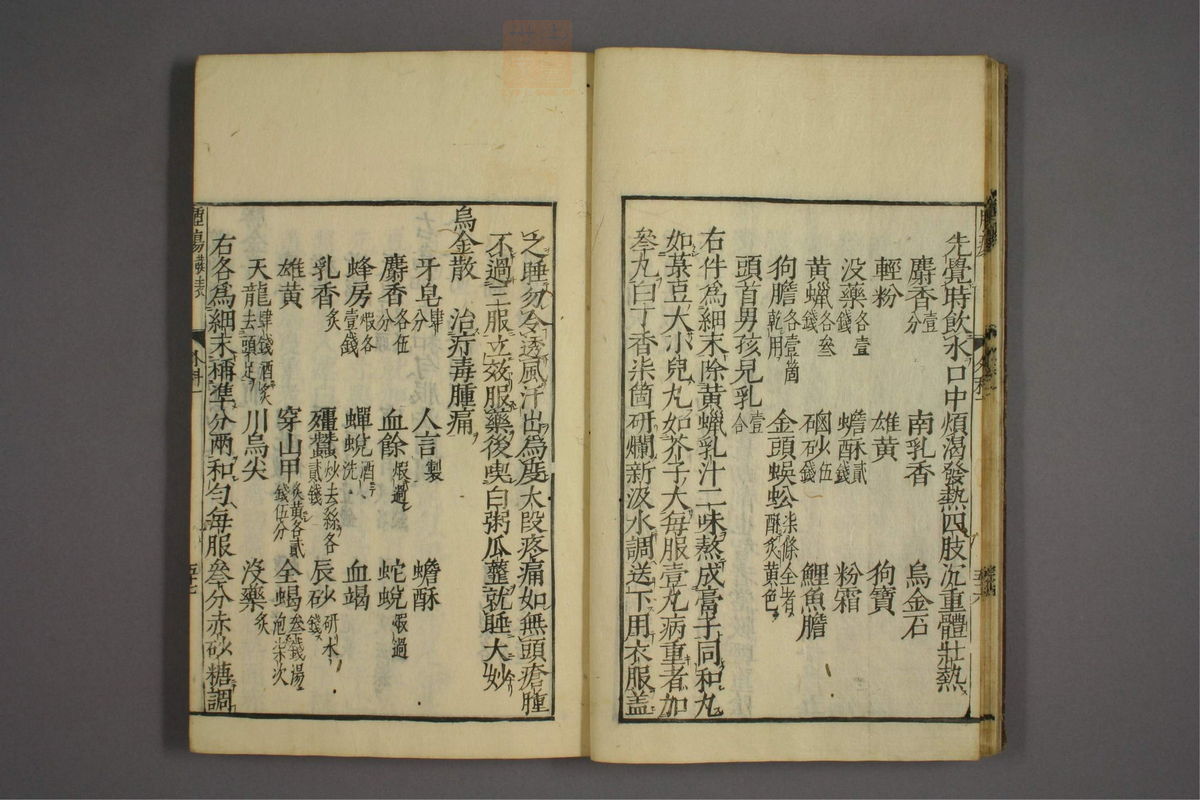 先覺時飲水口中煩渴發熱四肢沉重體壯熱
麝香壹分 南乳香 烏金石
輕粉 雄黄 狗寶
没藥各壹錢 蟾酥貳錢 粉霜
黄蠟各叁錢 硇砂伍錢 鯉魚膽
狗膽各壹箇乾用 金頭蜈蚣柒條全者酥炙黄色
頭首男孩兒乳壹合
右件爲細末除黄蠟乳汁二味熬成膏子同和丸
如菉豆大小兒丸如芥子大每服壹丸病重者加
叁丸白丁香柒箇研爛新汲水調送下用衣服盖
之睡勿令透風汗出爲度大段疼痛如無頭瘡腫
不過三服立效服藥後喫白粥瓜虀就睡大妙
烏金散 治疔毒腫痛
牙皂肆分 人言製 蟾酥
麝香各伍分 血餘煆過 蛇蛻煆過
蜂房煆各壹錢 蟬蛻酒洗 血竭
乳香炙 殭蠶炒去絲各貳錢 辰砂研水錢
雄黄 穿山甲炙黄各貳錢伍分 全蝎叁錢湯泡柒次
天龍肆錢酒炙去頭足 川烏尖 没藥炙
右各爲細末稱準分兩和勻每服叁分赤砂糖調